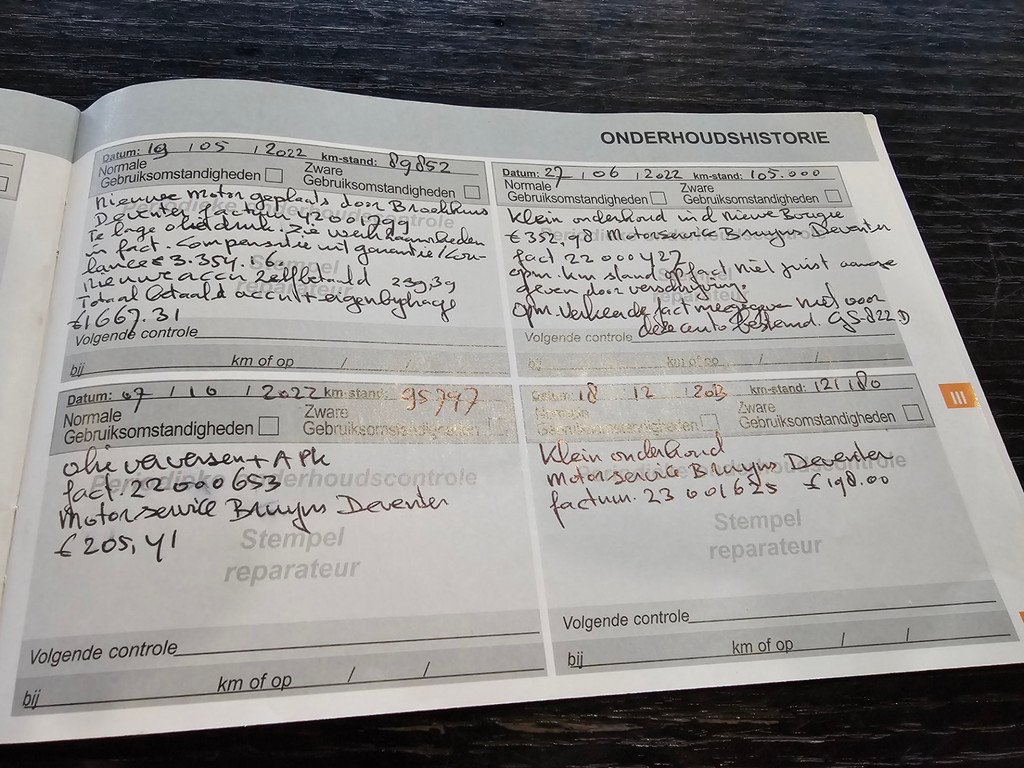 ONDERHOUDSHISTORIE
Datum: 19 / 05 / 2022 km-stand: 89852
Normale Gebruiksomstandigheden
Zware Gebruiksomstandigheden
Nieuwe motor geplaatst door Broekhuis
Deventer factuur 42001799
Te lage oliedruk. Zie werkzaamheden
in fact. Compensatie uit garantie/Cou-
lance € 3.354.16.
Nieuwe accu zelf betaald 239,39
Totaal betaald accu + eigenbijdrage
€ 1667.31
Volgende controle
bij km of op / /
Datum: 27 / 06 / 2022 km-stand: 105.000
Normale Gebruiksomstandigheden
Zware Gebruiksomstandigheden
Klein onderhoud incl nieuwe Bougie
€ 352,98 Motorservice Bruijns Deventer
fact 22000427
opm. km stand op fact niet juist aange
geven door verschrijving.
Opm. Verkeerde fact meegegeven niet voor
deze auto bestemd. GS-822-D
Volgende controle
bij km of op / /
Datum: 07 / 10 / 2022 km-stand: 95797
Normale Gebruiksomstandigheden
Zware Gebruiksomstandigheden
Periodieke onderhoudscontrole
olie verversen + APK
fact. 22000653
Motorservice Bruijns Deventer
€ 205,41
Stempel
reparateur
Volgende controle
bij km of op / /
Datum: 18 12 2023 km-stand: 121180
Normale Gebruiksomstandigheden
Zware Gebruiksomstandigheden
Klein onderhoud
Periodieke onderhoudscontrole
motorservice Bruijns Deventer
factuurn. 23001625 € 198.00
Stempel
reparateur
Volgende controle
bij km of op / /
III